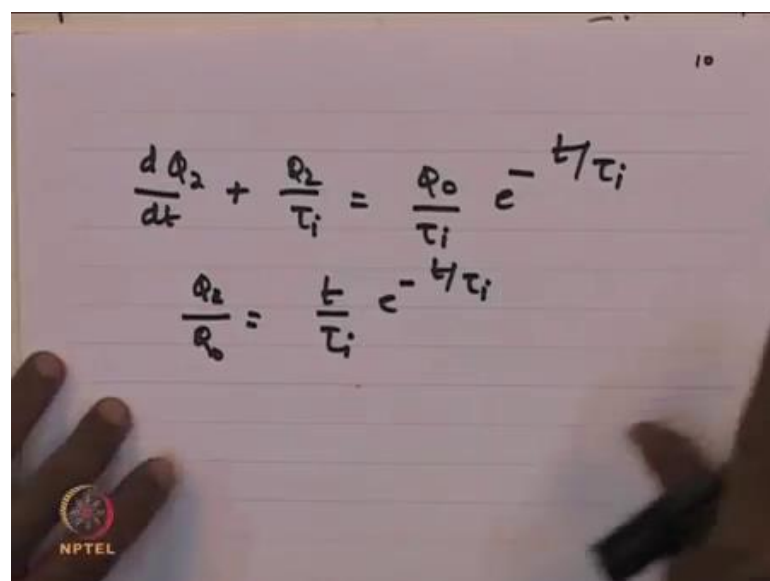 10
d Q₂/dt + Q₂/τᵢ = Q₀/τᵢ e^(- t/τᵢ)
Q₂/Q₀ = t/τᵢ e^(- t/τᵢ)
NPTEL